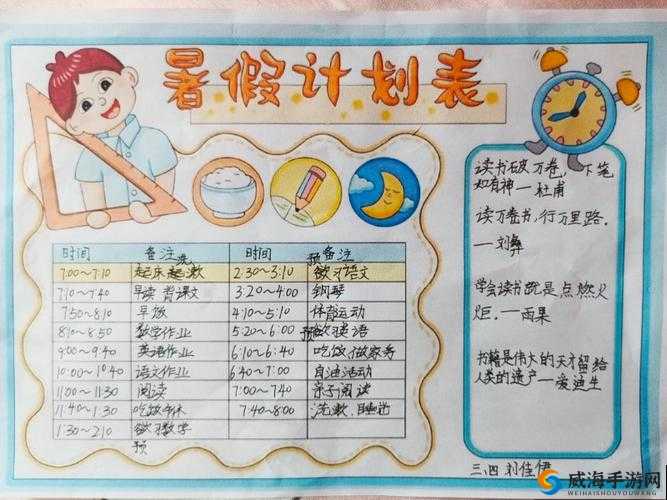 暑假计划表
时间 备注 时间 备注
7:00~7:10 起床 洗漱 2:30~3:10 预习语文
7:10~7:40 早读 背课文 3:20~4:00 钢琴
7:50~8:10 早饭 4:10~5:10 体育运动
8:10~8:50 数学作业 5:20~6:00 预习英语
9:00~9:40 英语作业 6:10~6:40 吃饭 做家务
10:00~10:40 语文作业 6:40~7:00 自由活动
11:00~11:30 阅读 7:00~7:40 亲子阅读
11:40~1:30 吃饭午休 7:40~8:00 洗漱、睡觉
1:30~2:10 预习数学
读书破万卷,下笔
如有神—杜甫
读万卷书,行万里路.
—刘彝
学会读书就是点燃火
炬.—雨果
书籍是伟大的天才留给
人类的遗产—爱迪生
三.四 刘佳伊
威海手游网
WEIHAISHOUYOUWANG